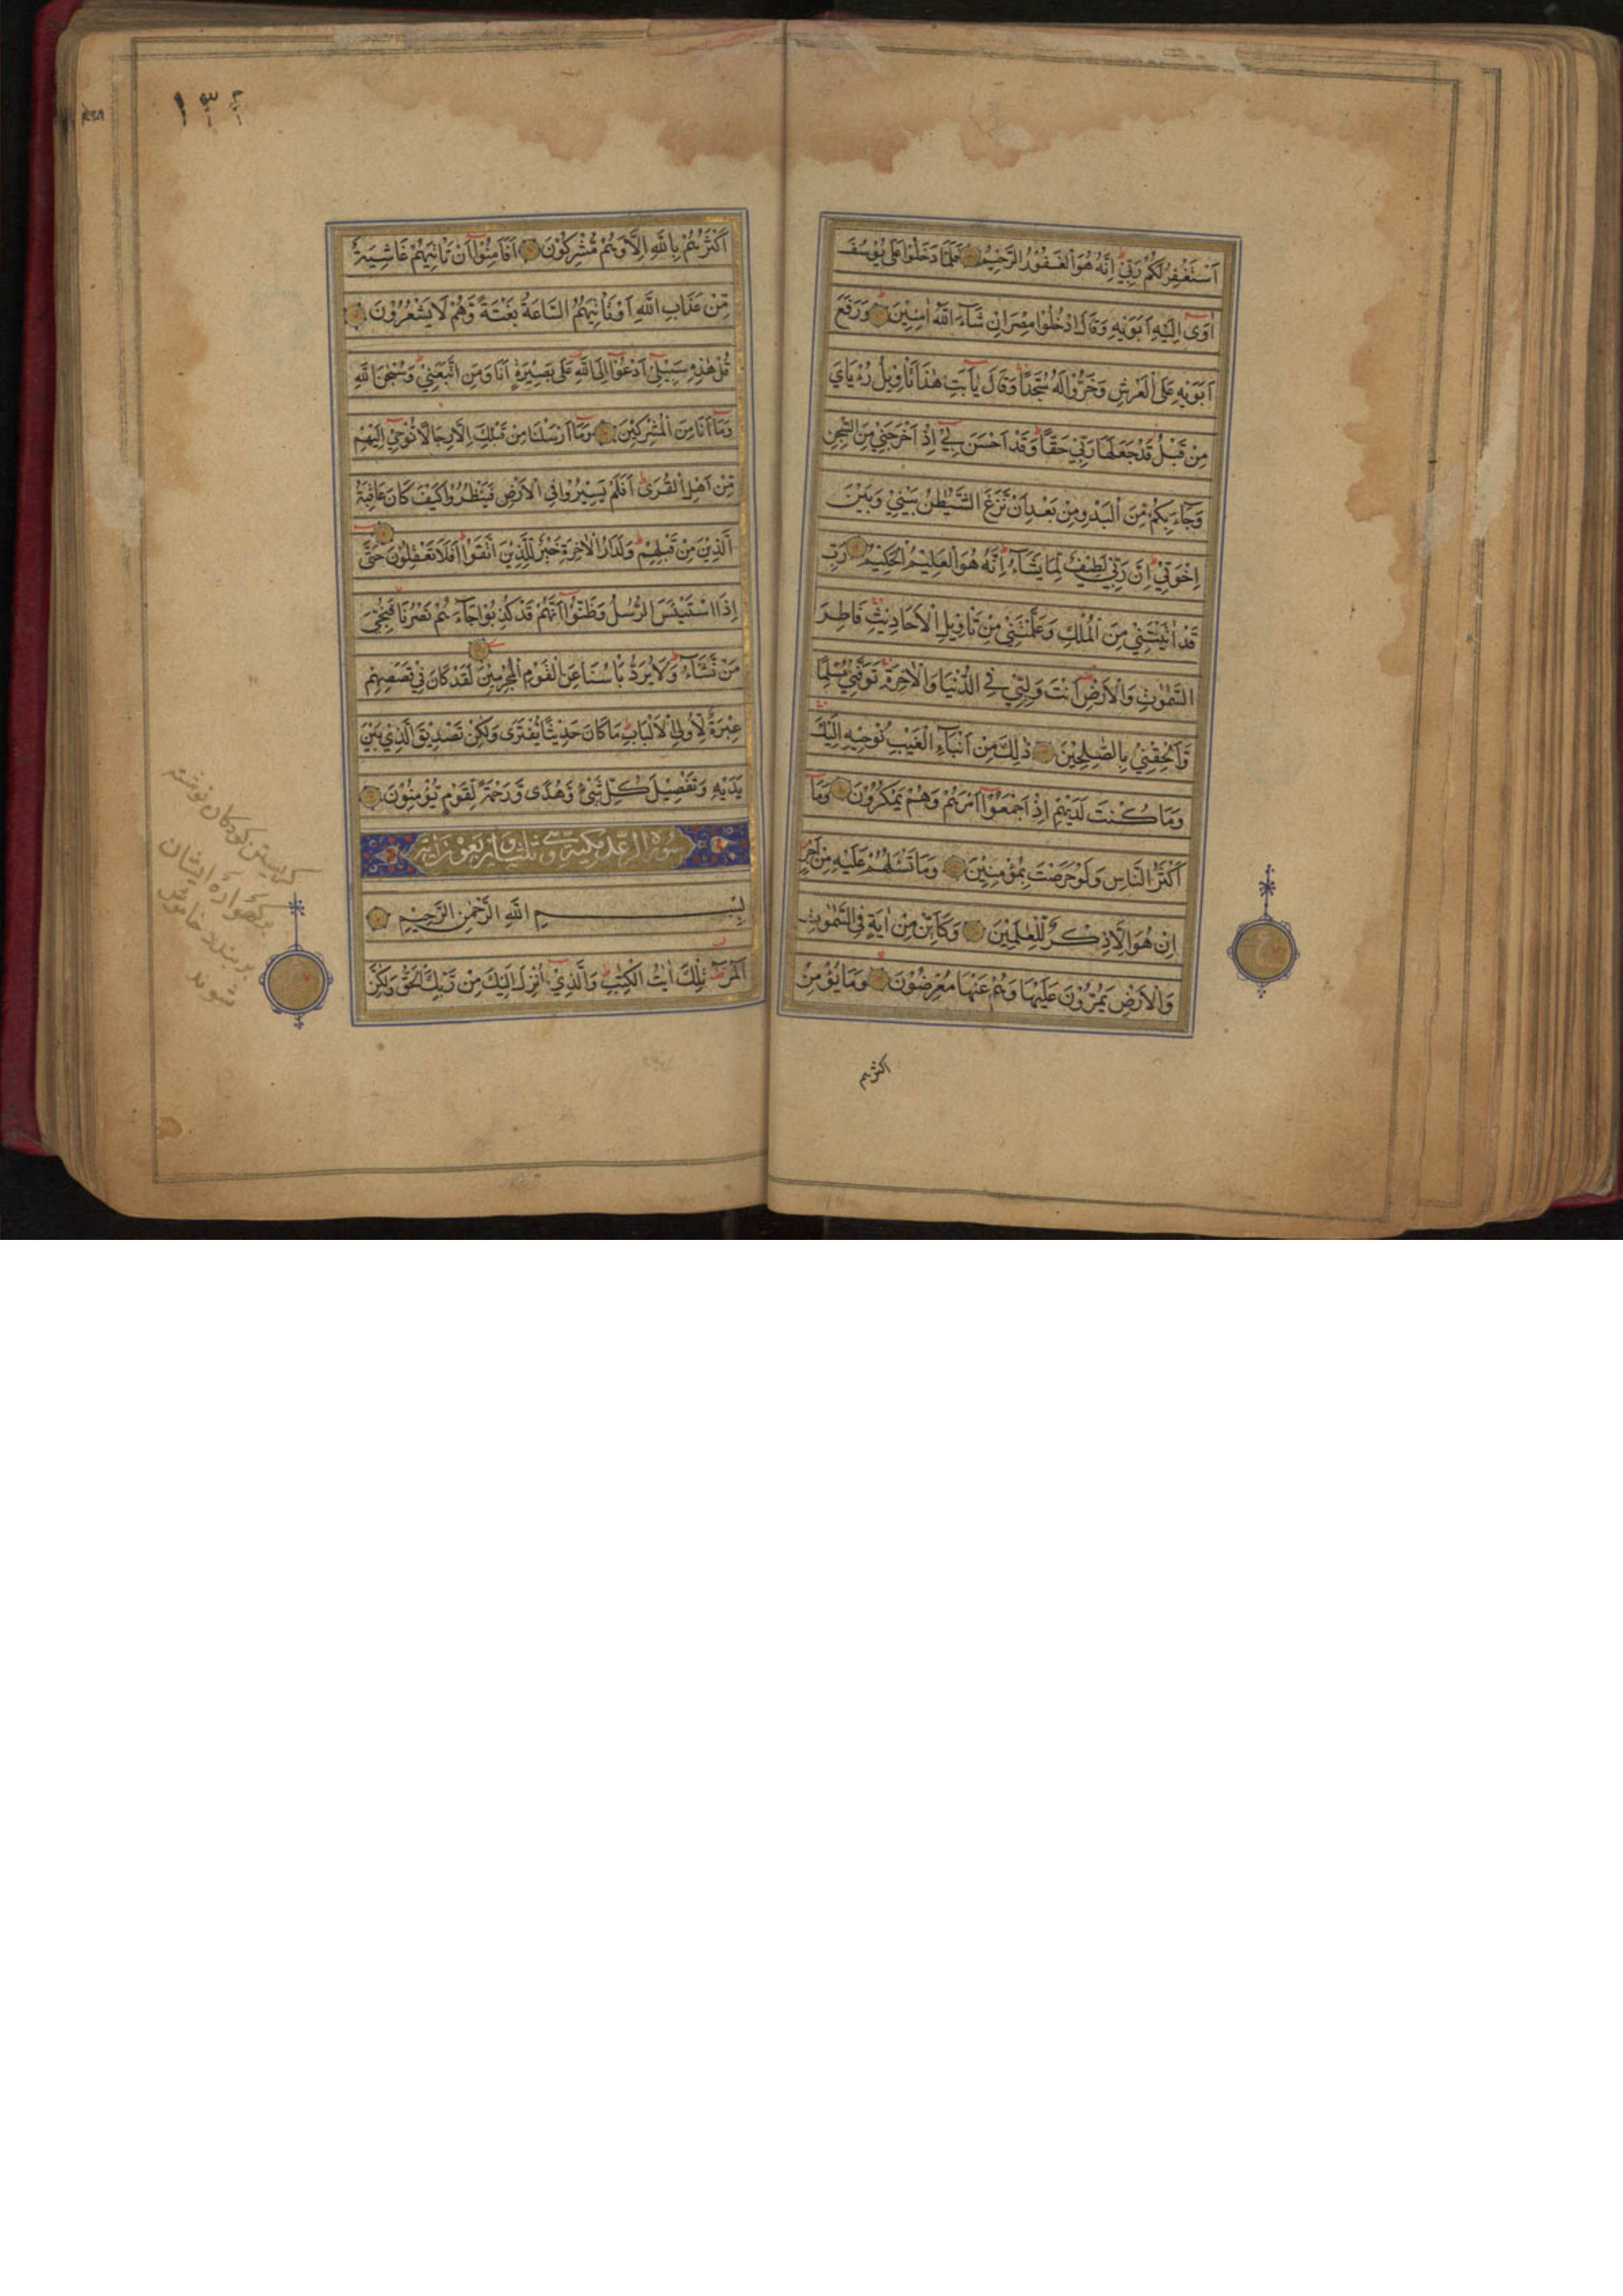 اَسْتَغْفِرُ لَكُمْ رَبّيْ اِنَّهُ هُوَ الْغَفُوْرُ الرَّحِيْمُ فَلَمَّا دَخَلُوْا عَلٰى يُوْسُفَ
اٰوٰى اِلَيْهِ اَبَوَيْهِ وَقَالَ ادْخُلُوْا مِصْرَ اِنْ شَآءَ اللّٰهُ اٰمِنِيْنَ وَرَفَعَ
اَبَوَيْهِ عَلَى الْعَرْشِ وَخَرُّوْا لَهُ سُجَّدًا وَقَالَ يٰاَبَتِ هٰذَا تَاْوِيْلُ رُءْيَايَ
مِنْ قَبْلُ قَدْ جَعَلَهَا رَبّيْ حَقًّا وَقَدْ اَحْسَنَ بيْ اِذْ اَخْرَجَنِيْ مِنَ السِّجْنِ
وَجَآءَ بِكُمْ مِنَ الْبَدْوِ مِنْ بَعْدِ اَنْ نَزَغَ الشَّيْطٰنُ بَيْنِيْ وَبَيْنَ
اِخْوَتِيْ اِنَّ رَبّيْ لَطِيْفٌ لِمَا يَشَآءُ اِنَّهُ هُوَ الْعَلِيْمُ الْحَكِيْمُ رَبِّ
قَدْ اٰتَيْتَنِيْ مِنَ الْمُلْكِ وَعَلَّمْتَنِيْ مِنْ تَاْوِيْلِ الْاَحَادِيْثِ فَاطِرَ
السَّمٰوٰتِ وَالْاَرْضِ اَنْتَ وَلِيّيْ فِي الدُّنْيَا وَالْاٰخِرَةِ تَوَفَّنِيْ مُسْلِمًا
وَّاَلْحِقْنِيْ بِالصّٰلِحِيْنَ ذٰلِكَ مِنْ اَنْبَآءِ الْغَيْبِ نُوْحِيْهِ اِلَيْكَ
وَمَا كُنْتَ لَدَيْهِمْ اِذْ اَجْمَعُوْٓا اَمْرَهُمْ وَهُمْ يَمْكُرُوْنَ وَمَآ
اَكْثَرُ النَّاسِ وَلَوْ حَرَصْتَ بِمُؤْمِنِيْنَ وَمَا تَسْئَلُهُمْ عَلَيْهِ مِنْ اَجْرٍ
اِنْ هُوَ اِلَّا ذِكْرٌ لِّلْعٰلَمِيْنَ وَكَاَيِّنْ مِّنْ اٰيَةٍ فِي السَّمٰوٰتِ
وَالْاَرْضِ يَمُرُّوْنَ عَلَيْهَا وَهُمْ عَنْهَا مُعْرِضُوْنَ وَمَا يُؤْمِنُ
اكثرهم
١٣٤
اَكْثَرُهُمْ بِاللّٰهِ اِلَّا وَهُمْ مُّشْرِكُوْنَ اَفَاَمِنُوْٓا اَنْ تَاْتِيَهُمْ غَاشِيَةٌ
مِّنْ عَذَابِ اللّٰهِ اَوْ تَاْتِيَهُمُ السَّاعَةُ بَغْتَةً وَّهُمْ لَا يَشْعُرُوْنَ
قُلْ هٰذِهِ سَبِيْلِيْ اَدْعُوْٓا اِلَى اللّٰهِ عَلٰى بَصِيْرَةٍ اَنَا وَمَنِ اتَّبَعَنِيْ وَسُبْحٰنَ اللّٰهِ
وَمَآ اَنَا مِنَ الْمُشْرِكِيْنَ وَمَآ اَرْسَلْنَا مِنْ قَبْلِكَ اِلَّا رِجَالًا نُوْحِيْ اِلَيْهِمْ
مِّنْ اَهْلِ الْقُرٰى اَفَلَمْ يَسِيْرُوْا فِي الْاَرْضِ فَيَنْظُرُوْا كَيْفَ كَانَ عَاقِبَةُ
الَّذِيْنَ مِنْ قَبْلِهِمْ وَلَدَارُ الْاٰخِرَةِ خَيْرٌ لِّلَّذِيْنَ اتَّقَوْا اَفَلَا تَعْقِلُوْنَ حَتّٰى
اِذَا اسْتَيْئَسَ الرُّسُلُ وَظَنُّوْٓا اَنَّهُمْ قَدْ كُذِبُوْا جَآءَهُمْ نَصْرُنَا فَنُجِّيَ
مَنْ نَّشَآءُ وَلَا يُرَدُّ بَاْسُنَا عَنِ الْقَوْمِ الْمُجْرِمِيْنَ لَقَدْ كَانَ فِيْ قَصَصِهِمْ
عِبْرَةٌ لِّاُولِي الْاَلْبَابِ مَا كَانَ حَدِيْثًا يُّفْتَرٰى وَلٰكِنْ تَصْدِيْقَ الَّذِيْ بَيْنَ
يَدَيْهِ وَتَفْصِيْلَ كُلِّ شَيْءٍ وَّهُدًى وَّرَحْمَةً لِّقَوْمٍ يُّؤْمِنُوْنَ
سورة الرعد مكية وهي ثلث و اربعون اية
بِسْمِ اللّٰهِ الرَّحْمٰنِ الرَّحِيْمِ
الٓمٓرٰ تِلْكَ اٰيٰتُ الْكِتٰبِ وَالَّذِيْٓ اُنْزِلَ اِلَيْكَ مِنْ رَّبِّكَ الْحَقُّ وَلٰكِنَّ
كريستن كودكان نوشته
بر كهواره ايشان
بربندند خاموش
شوند